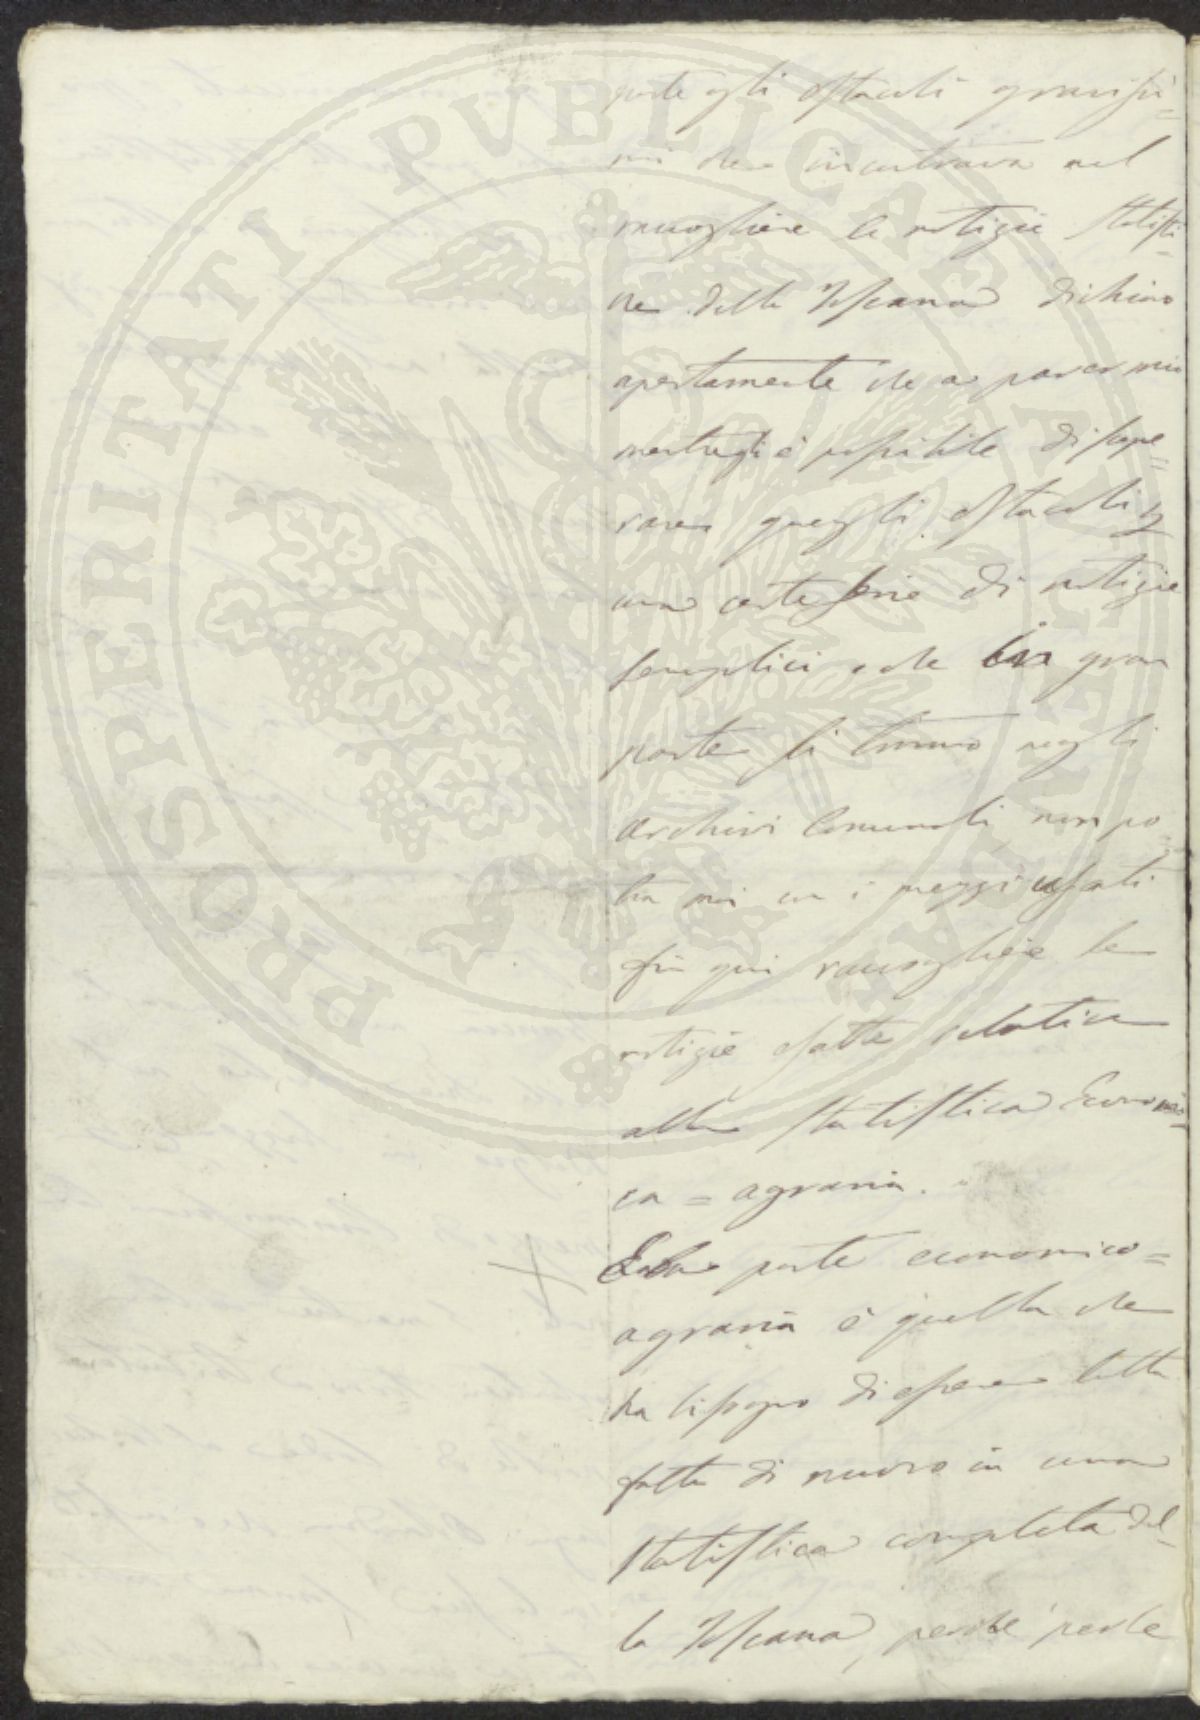 PROSPERITATI PVBLICAE AVGENDAE
parte gli ostacoli gravissi=
mi che incontrava nel
raccogliere le notizie statisti=
che della Toscana dichiaro
apertamente che a parer mio
mentregli è possibile di supe=
rare quegli ostacoli p
una certa serie di notizie
semplici, e che in gran
parte si trovano negli
archivi Comunali, non po
trà mai con i mezzi usati
fin qui raccogliere le
notizie esatte relative
alla statistica Economi=
ca = agraria.
E la parte economico=
agraria è quella che
ha bisogno di essere tutta
fatta di nuovo in una
statistica completa del=
la Toscana, perchè per le